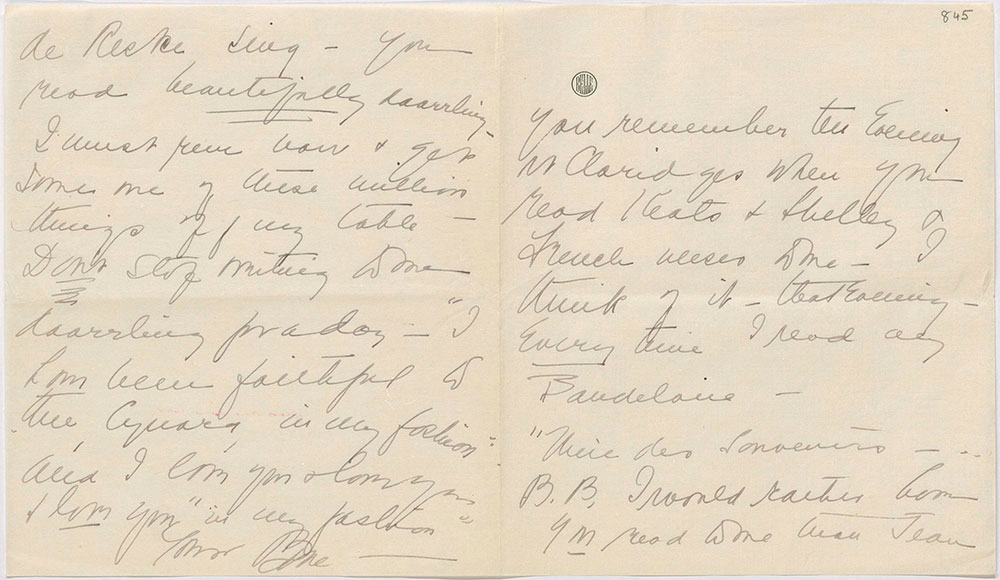 845
You remember the Evening
at Claridges when you
read Keats & Shelley &
French verses to me – I
think of it – that Evening –
Every time I read any
Baudelaire –
"Mère des Souvenirs – ..
B.B. I would rather hear
you read to me than Jean
de Reske sing – You
read beautifully daarrling –
I must run now & get
some one of these million
things off my table –
Dont stop writing to me
daarrling for a day – "I
have been faithful to
thee, Cynara, in my fashion"
and I love you & love you
& love you "in my fashion"